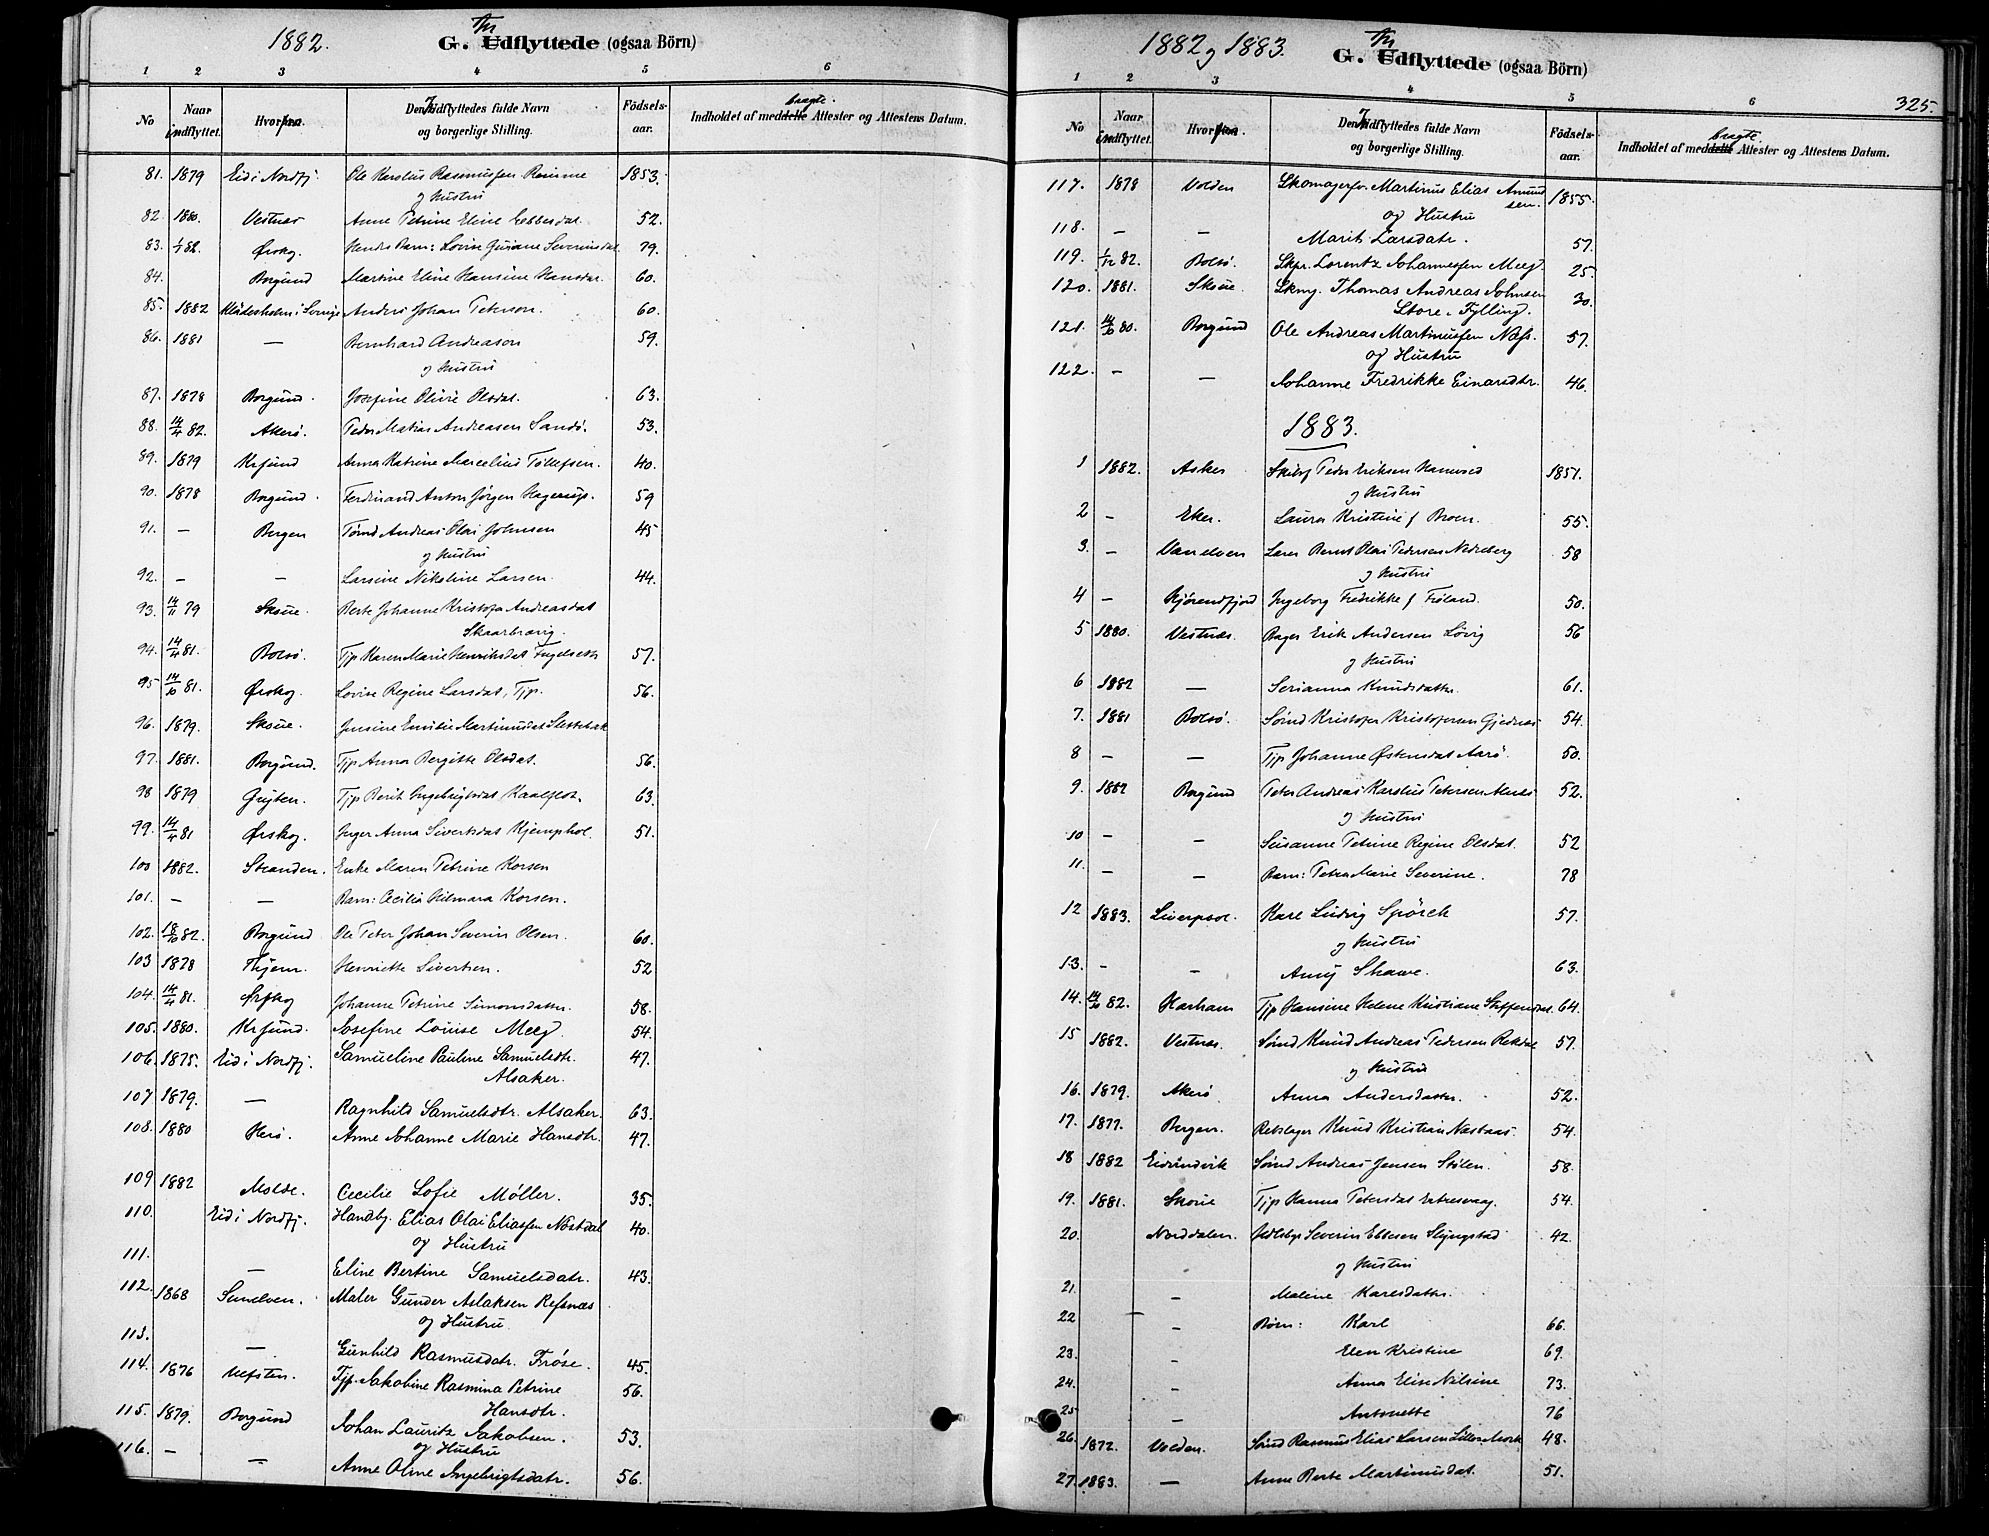 1882.
G. Udflyttede (ogsaa Börn)
Ind
1 2 3 4 5 6
No
Naar indflyttet.
Hvorfra.
Den Indflyttedes fulde Navn og borgerlige Stilling.
Födsels-aar.
Indholdet af medbragte Attester og Attestens Datum.
81. 1879 Eid i Nordfj. Ole Karolus Rasmussen 1853.
og Hustru
82. 1880. Vestnæs Anne Petrine Eline Ebbesdat. 52.
83. 1/7 82. Ørskog. Lovise Severinsdat. 79.
84. Borgund Martine Eline Hansine Hansdat. 60.
85. 1882 i Sverige Anders Johan Peterson. 60.
86. 1881 — Bernhard Andreason 59.
og Hustru
87. 1878 Borgund. Josefine Olivie Olsdat. 63.
88. 14/4 82. Akerø. Peder Matias Andreasen Sandø. 53.
89. 1879 Krsund Anna Katrine Marcelius Tollefsen. 40.
90. 1878 Borgund. Ferdinand Anton Jørgen Hagerup. 59
91. — Bergen Tømd Andreas Olai Johnsen 45
og Hustru
92. — — Larsine Nikoline Larsen. 44.
93. 14/11 79 Skoue. Berte Johanne Kristofa Andreasdat
Skaarbrævig.
94. 14/4 81. Bolsø. Tjp Karen Marie Henriksdat Engelseth 57.
95 14/10 81. Ørskog. Lovise Regine Larsdat, Tjp. 56.
96. 1879. Skoue. Jensine Emilie Martinusdat Slettebak
97. 1881. Borgund. Tjp Anna Bergitte Olsdat. 56.
98 1879 Grytten. Tjp Berit Ingebrigtsdat 63.
99. 14/4 81 Ørskog. Inger Anna Sivertsdat Kjemphol. 51.
100 1882. Stranden. Enke Maren Petrine Korsen
101. — — Barn: Cecilia Hilmara Korsen.
102. 18/10 82. Borgund Ole Peter Johan Severin Olsen. 60.
103 1878 Henriette Sivertsen. 52
104. 14/4 81. Ørskog Johanne Petrine Simonsdatter. 58.
105. 1880. Krsund. Josefine Louise Meeg. 54.
106. 1875. Eid i Nordfj. Samueline Pauline Samuelsdtr. 47.
Alsaker.
107 1879. — Ragnhild Samuelsdtr. Alsaker. 63.
108. 1880 Herø. Anne Johanne Marie Hansdtr. 47.
109 1882 Molde. Cecilie Sofie Møller. 35.
110. Eid i Nordfj. Handby. Elias Olai Eliassen Nøstdal 40.
og Hustru
111. — Eline Bertine Samuelsdatr. 43.
112. 1868 Sunelven. Maler Gunder Aslaksen Refsnæs
og Hustru
113. — Gunhild Rasmusdatr. Frøse. 45.
114. 1876 Ulfsten. Tjp. Jakobine Rasmina Petrine 56.
Hansdtr.
115. 1879. Borgund Johan Lauritz Jakobsen. 53.
og Hustru
116. — — Anne Oline Ingebrigtsdatr. 56.
1882 og 1883.
G. Udflyttede (ogsaa Börn)
Ind
325.
1 2 3 4 5 6
No
Naar indflyttet.
Hvorfra.
Den Indflyttedes fulde Navn og borgerlige Stilling.
Födsels-aar.
Indholdet af medbragte Attester og Attestens Datum.
117. 1878 Volden Skomagersv. Martinus Elias Amund 1855.
sen.
og Hustru
118. — — Marit Larsdatr. 57.
119. 1/12 82. Bolsø. Skpr. Lorentz Johannessen Meeg. 25
120. 1881. Skoue. Skmg. Thomas Andreas Johnsen 30.
Store-Fylling.
121. 14/10 80. Borgund Ole Andreas Martinussen Næss. 57.
og Hustru
122. — — Johanne Fredrikke Einarsdtr. 46.
1883.
1 1882. Asker Peder Eriksen 1851.
og Hustru
2 — Eker. Laura Kristine f Broen. 55.
3. — Vanelven Lærer Bernt Olai Pedersen Nedreberg 58
og Hustru
4 — Hjørendfjord Ingeborg Fredrikke f Frøland. 50.
5 1880. Vestnæs. Bager Erik Andersen Løvig 56
og Hustru
6 1882 — Serianna Knudsdatter. 61.
7. 1881 Bolsø. Sømd Kristofer Kristofersen Gjednæs 54.
8 — — Tjp Johanne Østensdat Aarø. 50.
9. 1882 Borgund Peter Andreas Karolus Petersen Alnæs 52.
og Hustru
10 — — Susanne Petrine Regine Olsdat. 52
11. — — Barn: Petra Marie Severine. 78
12 1883. Liverpool. Karl Ludvig Spörck 57.
og Hustru
13. — — Amy Shawe. 63.
14. 14/10 82. Harham Tjp Hansine Helene Kristiane Steffensdat. 64.
15 1882. Vestnæs. Sømd Knud Andreas Pedersen Rekdal 57.
og Hustru
16. 1879. Akerø Anna Andersdatter. 52.
17. 1877. Bergen. Rebslager Knud Kristian Næstaas. 54.
18 1882 Eidsundvik Sømd Andreas Jensen Stølen. 58.
19. 1881. Skoue Tjp Hanna Petersdat 54.
20. Norddalen. Severin Ebbesen Slyngstad 42.
og Hustru
21. — Malene Karlsdatter.
22 — Børn: Karl 66.
23. — Elen Kristine 69.
24. — Anna Elise Nilsine 73.
25 — Antonette 76
26. 1872. Volden. Sømd Rasmus Elias Larsen Lillemork 48.
27. 1883. — Anne Berte Martinusdat. 51.